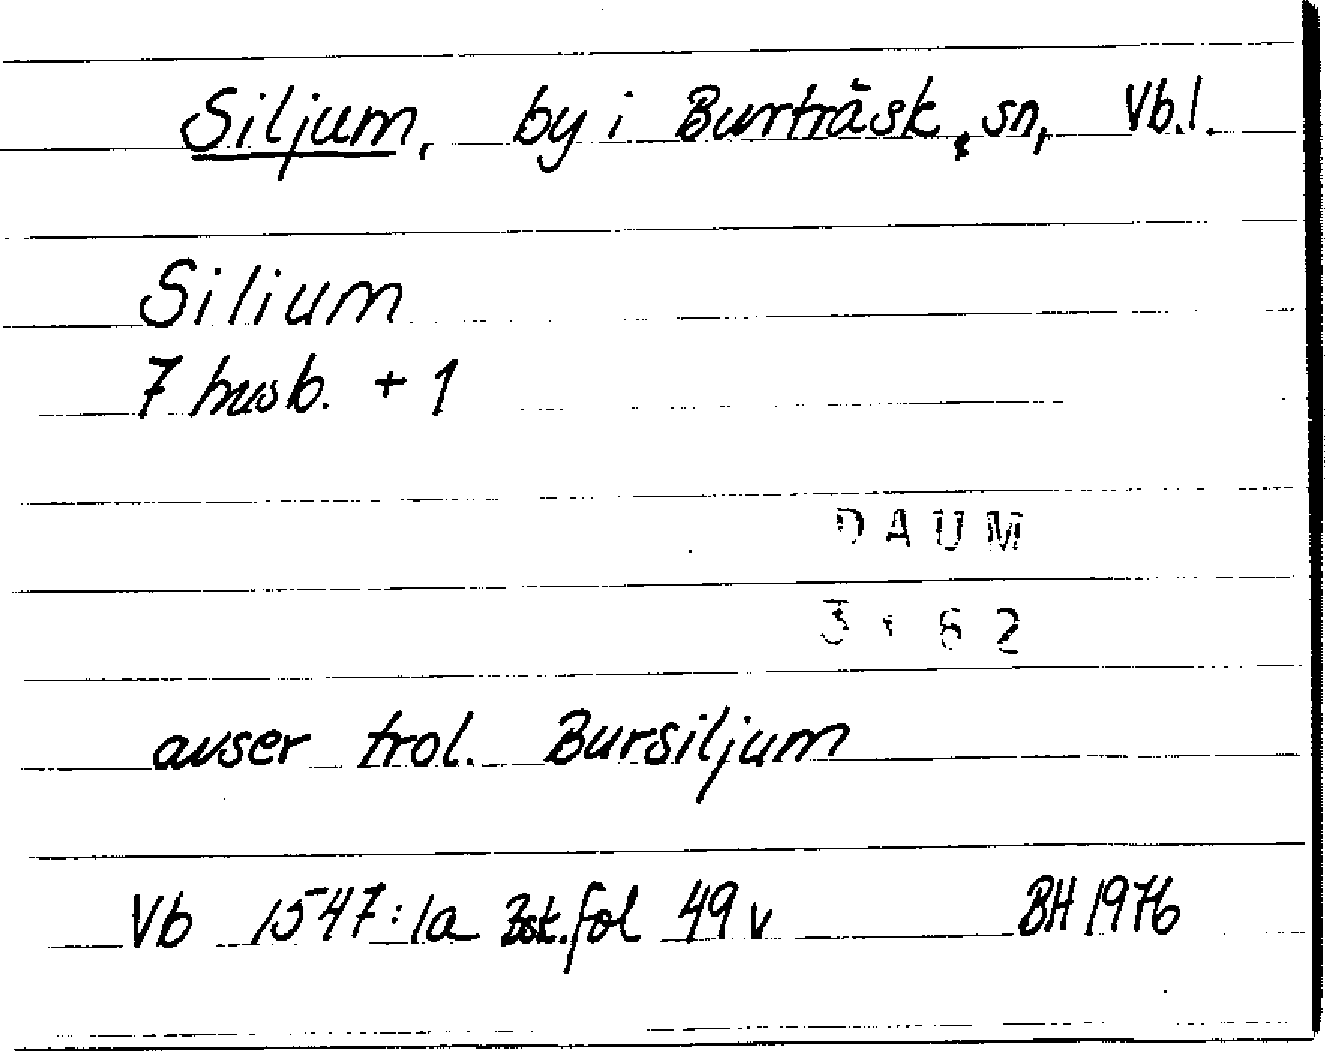 Siljum, by i Burträsk, sn, Vb.l.
Silium
7 husb. + 1
DAUM
3 6 2
avser trol. Bursiljum
Vb 1547:1a fol 49 v BH 1976